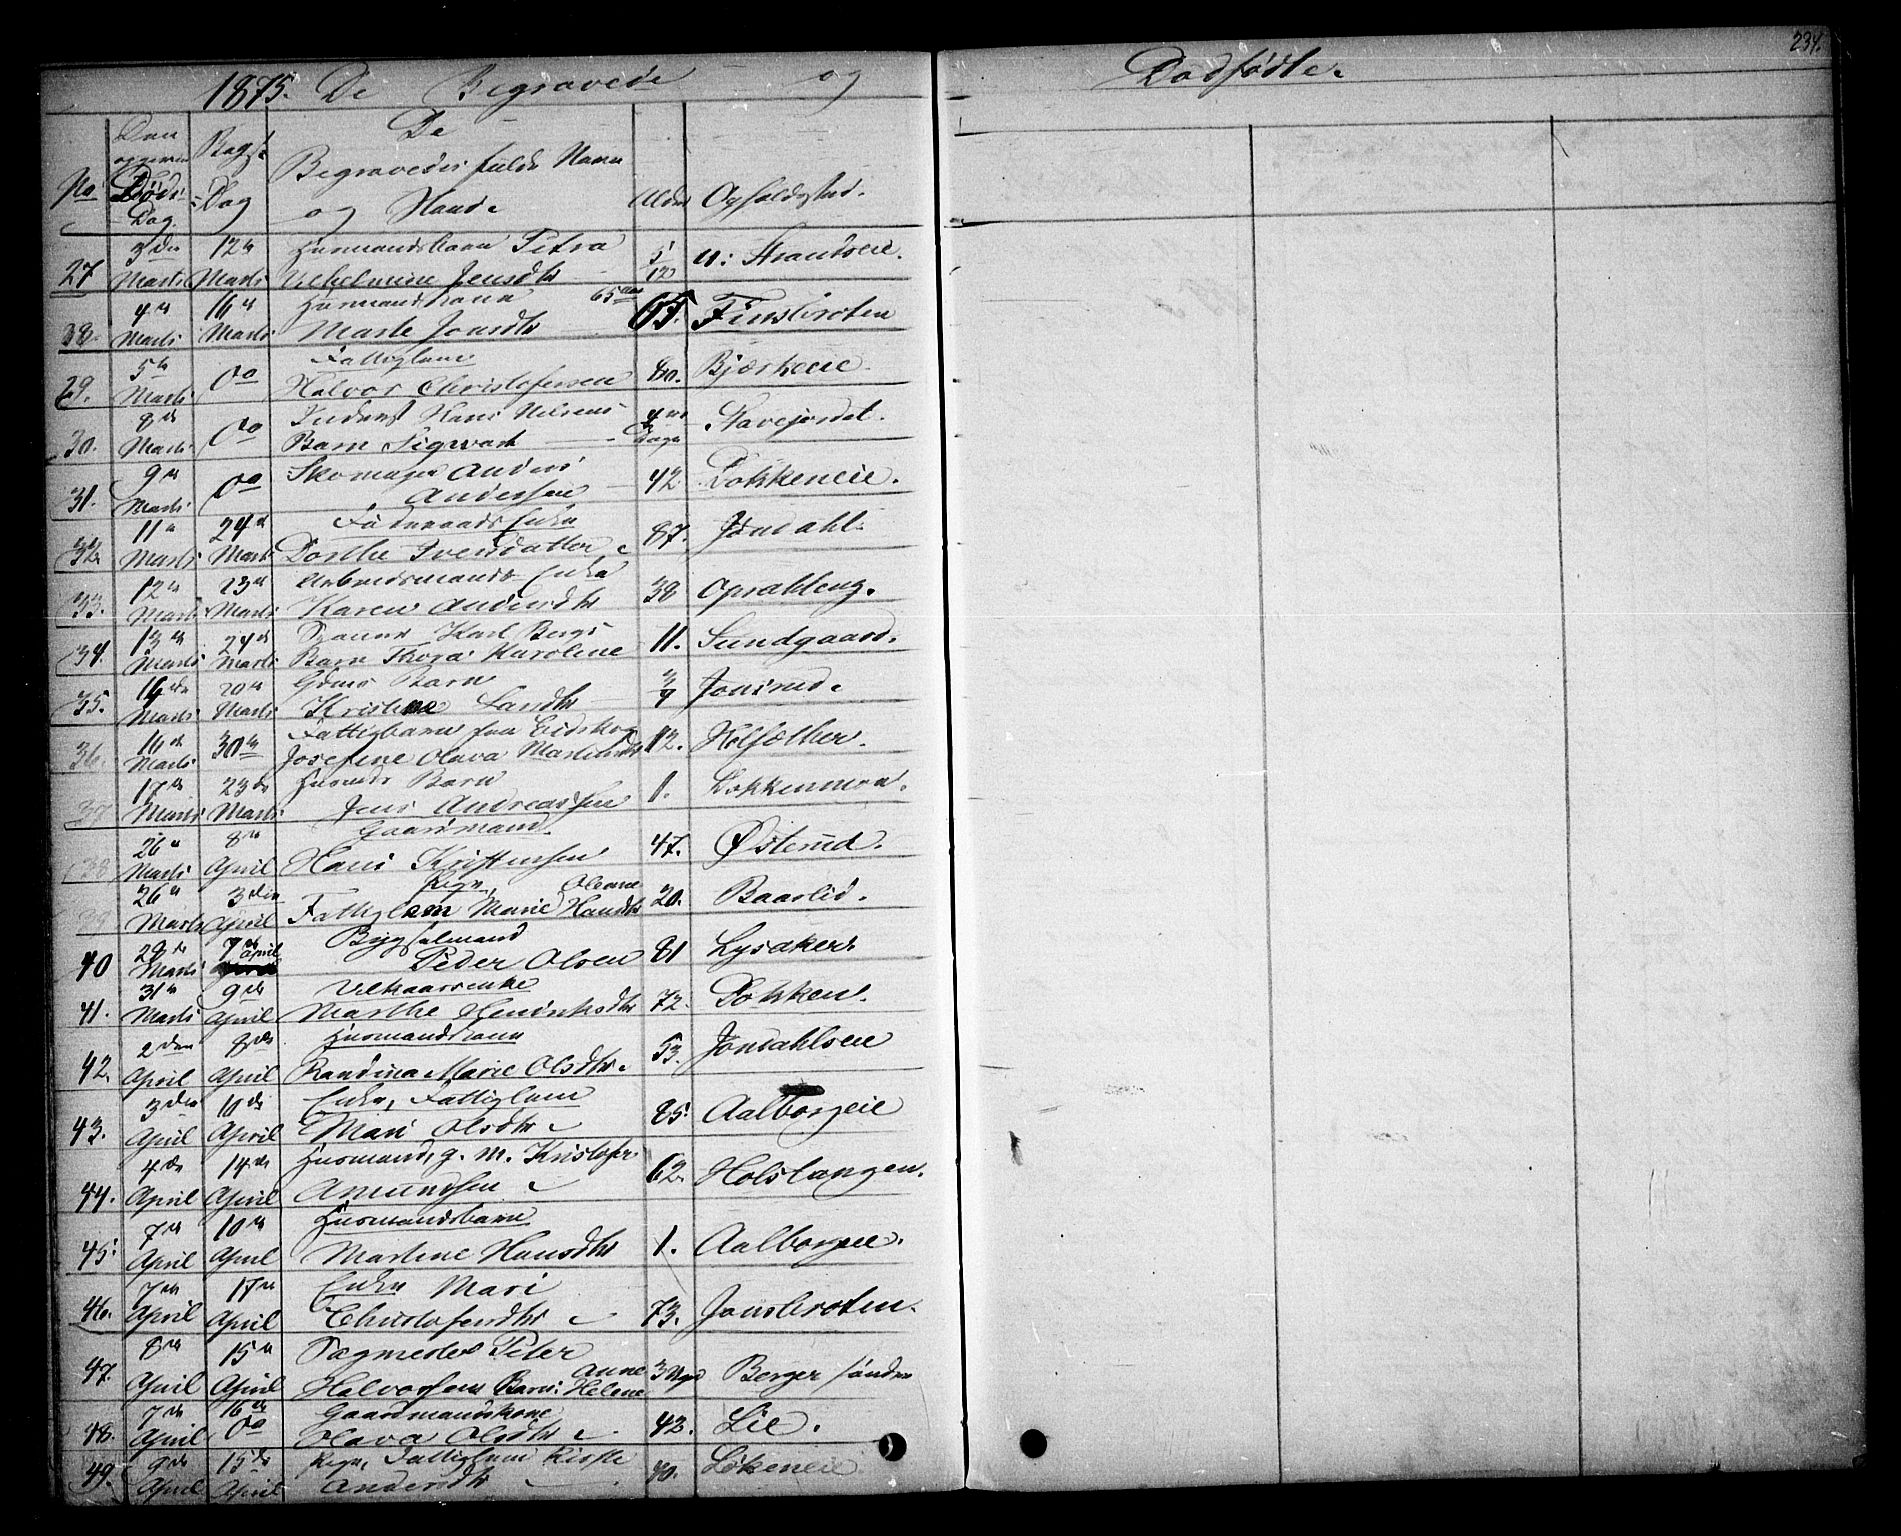 234.
1875. De Begravede og Dødfødte.
No Den opgivne Døds Dag Begr. Dag De Begravedes fulde Navn og Stand Alder Opholdsted.
27 3die Marts 12te Marts Husmandsbarn Petra
Vilhelmine Jensdtr 5/12 n: Strandseie.
28. 4de Marts 16de Marts Husmandskone 65 aar
Marte Jonsdtr 65. Finsbroten
29. 5te Marts do Fattiglem
Halvor Christofersen 80. Bjerkeeie.
30. 8de Marts do Inderst Hans Nilsens
Barn Sigvart 4 Dage Stavejordet.
31. 9de Marts do Skomager Anders
Andersen 42 Dokkeneie.
32. 11te Marts 24de Marts Føderaads Enke
Dorthe Svensdatter 87. Jøndahl.
33. 12te Marts 23de Marts Arbeidsmands Enke
Karen Andersdtr 38 Opsahleng.
34. 13de Marts 24de Marts Karl Bergs
Barn Thora Karoline 11. Sundgaard.
35. 14de Marts 20de Marts Gdmds Barn
Kristine Larsdtr Jonsrud.
36. 16de Marts 30te Fattigbarn fra Eidskog
Josefine Olava Martinsdtr 12. Holsæther.
37 17de Marts 23de Marts Husmds Barn
Jens Andreassen 1. Dokkenmoen.
38 26de Marts 8de April Gaardmand.
Hans Kristensen 47. Østerud.
39 26de Marts 3die April Pige, Oleane
Fattiglem Marie Hansdtr 20. Baaslid.
40 29de Marts 7de April Bygselmand
Peder Olsen 81 Lysaker.
41. 31te Marts 9de April Velkaarsenke
Marthe Henriksdtr 72. Dokken.
42. 2den April 8de April Husmandskone
Randina Marie Olsdtr. 53. Jøndahlseie
43. 3die April 10de April Enke, Fattiglem
Mari Olsdtr 85. Aalborgeie
44. 4de April 14de April Husmand, g. m. Kristofer
Amundsen 62. Holstangen.
45. 7de April 10de April Husmandsbarn
Martine Hansdtr 1. Aalborgeie.
46. 7de April 17de April Enke Mari
Christofersdtr 73. Jonsbroten.
47. 8de April 15de April Tægmester Peter
Halvorsens Barn: Anne Helene 3 Uger Berger søndre
48. 7de April 16de do Gaardmandskone
Olava Olsdtr 42. Lie.
49. 9de April 15de April Pige, Fattiglem Kirstie
Andersdtr 40. Løkeneie